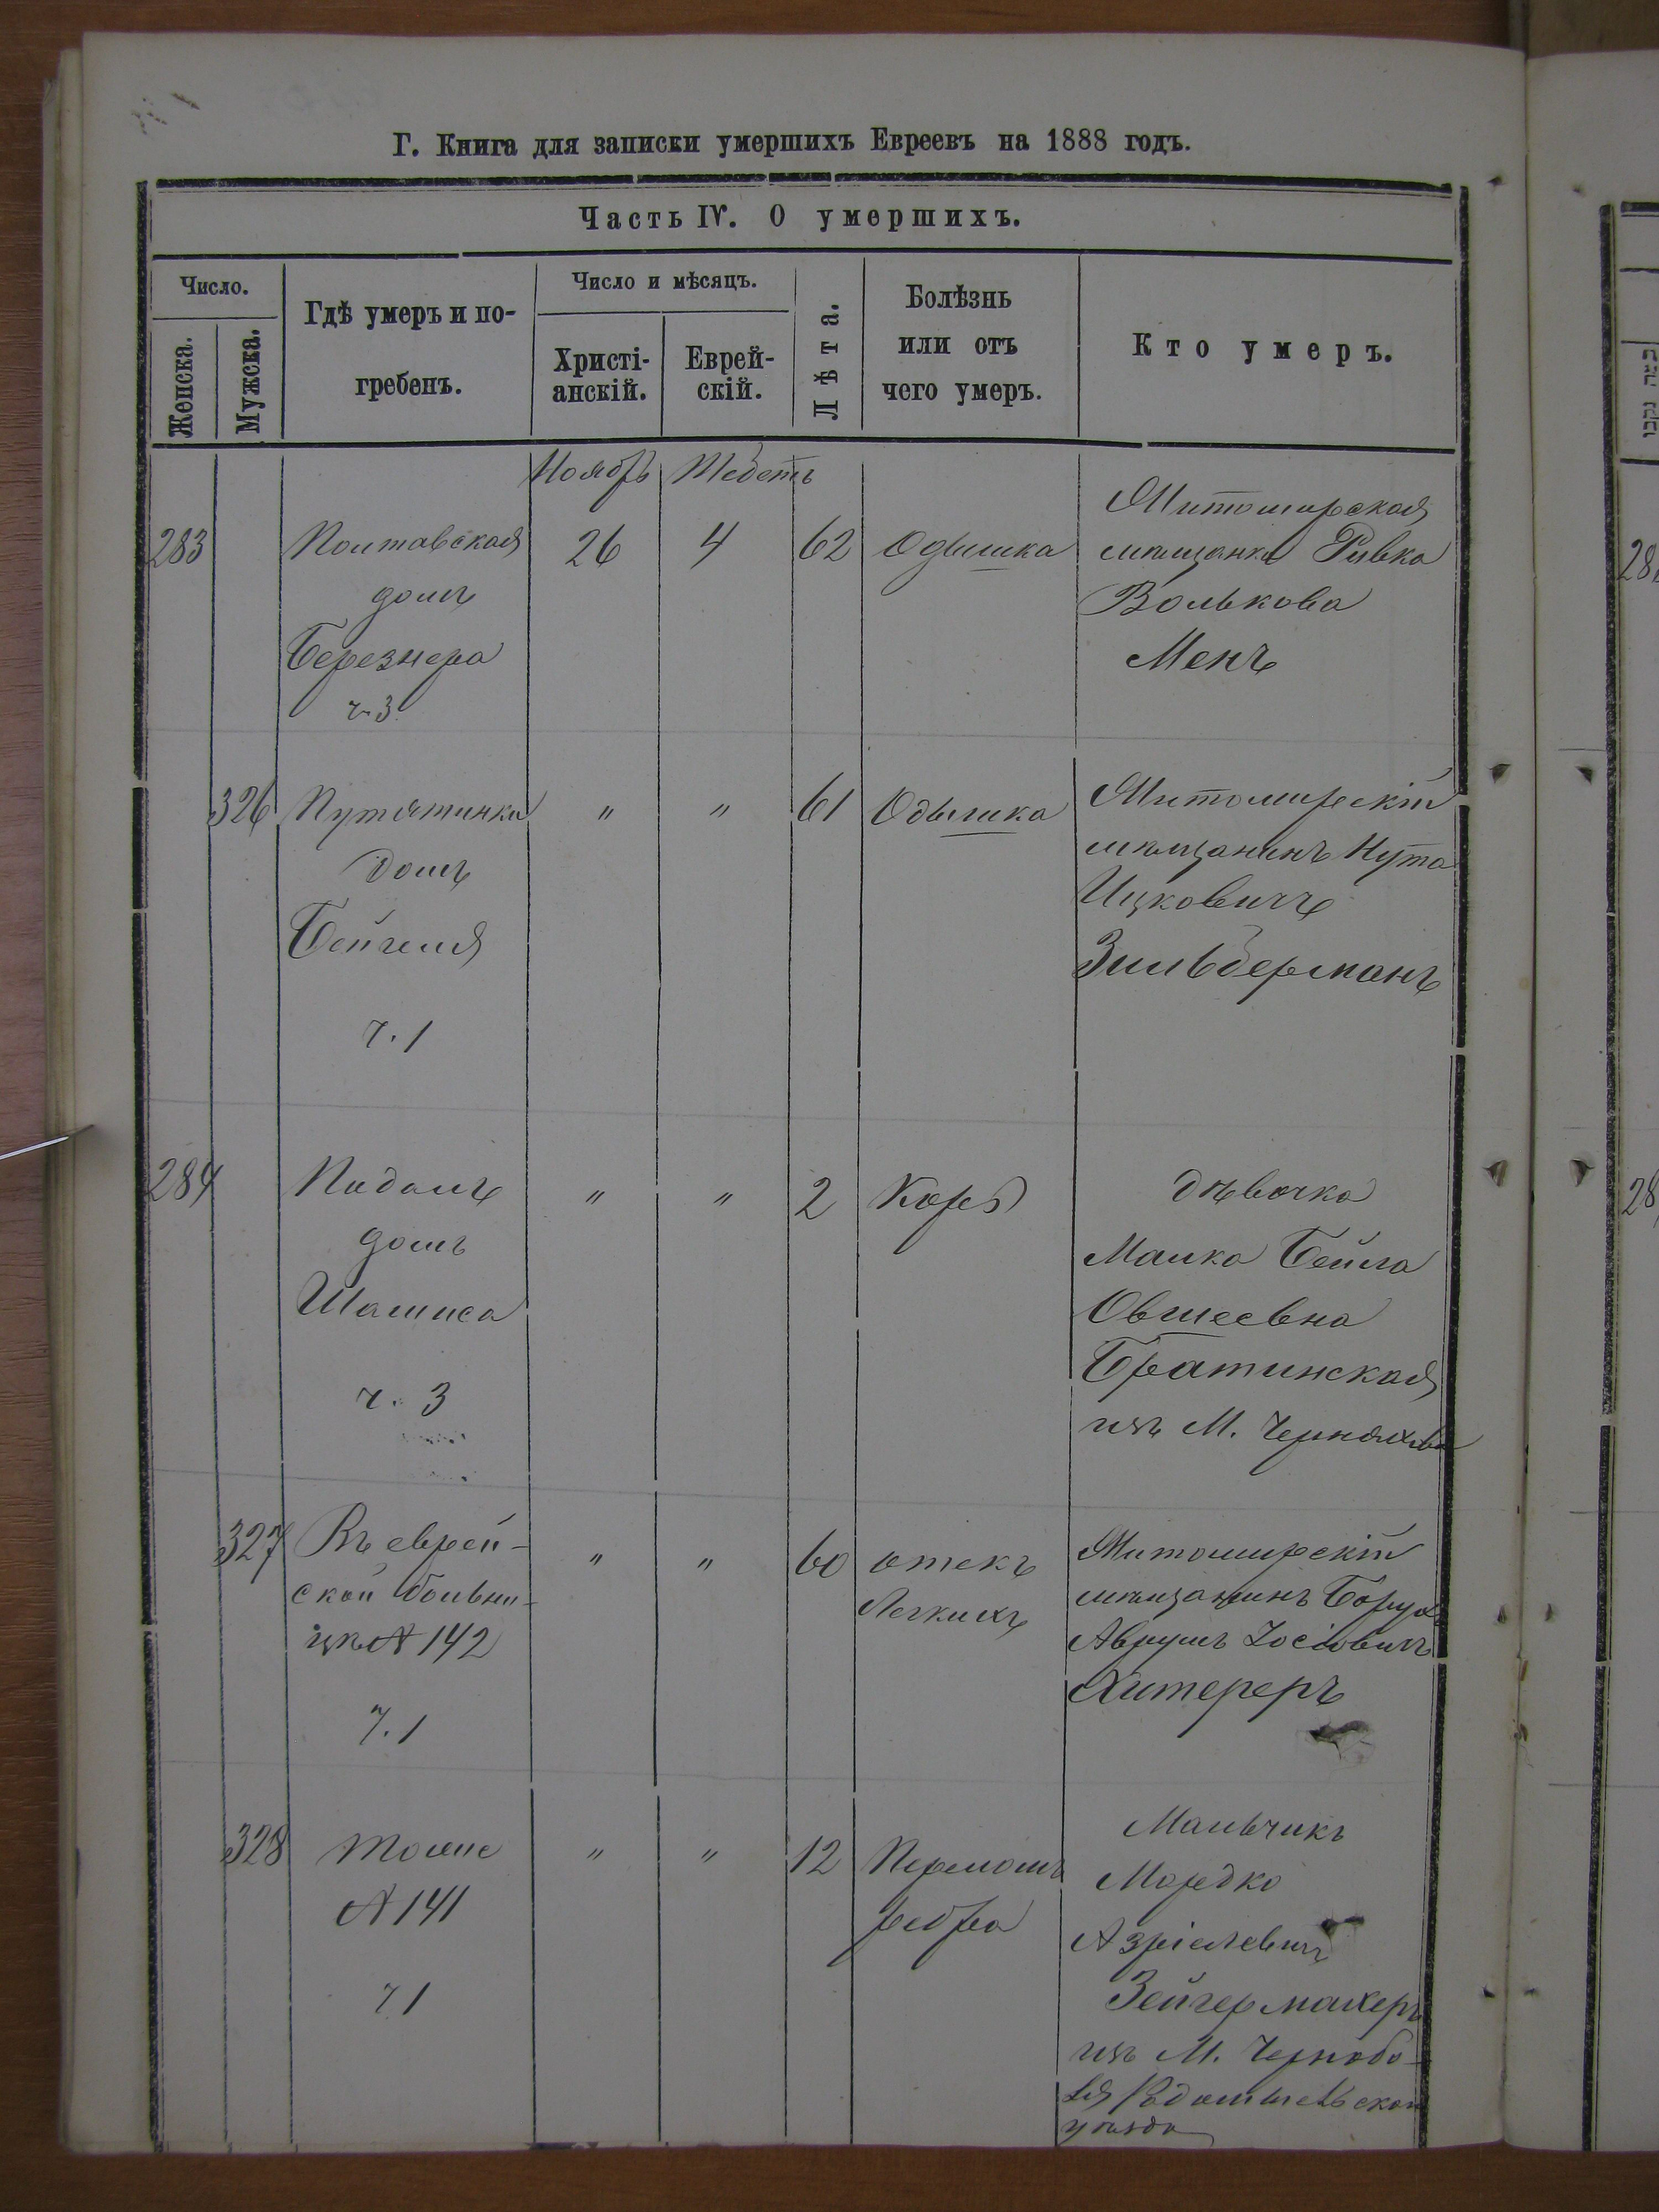 Г. Книга для записки умершихъ Евреевъ на 1888 годъ.
Часть IV. О умершихъ.
Число.
Женска.
Мужска.
Гдѣ умеръ и по-
гребенъ.
Число и мѣсяцъ.
Христі-
анскій.
Еврей-
скій.
Лѣта.
Болѣзнь
или отъ
чего умеръ.
Кто умеръ.
Ноябрь Тебетъ
283 Полтавская 26 4 62 Одышка
домъ
Березнера
ч 3
Житомирская
мѣщанка Ривка
Волькова
Менъ
326 Путятинка " " 61 Одышка
домъ
Бейгеля
ч. 1
Житомирскій
мѣщанинъ Нута
Ицковичъ
Зильберманъ
284 " " 2 Корь
домъ
ч. 3
дѣвочка
Малка Бейла
Овшеевна
Братинская
изъ М. Черняхова
327 Въ еврей- " " 60 отекъ
ской больни-
цѣ № 142
ч. 1
Легкихъ
Житомирскій
мѣщанинъ Борух
Аврумъ Іосіовичъ
Хитереръ
328 Тоже " " 12 Переломъ
№ 141
ч 1
ребра
Мальчикъ
Мордко
Азріелевичъ
Зейгермахеръ
изъ М. Чернобы-
ля Радомысльскаго
уѣзда
28
28